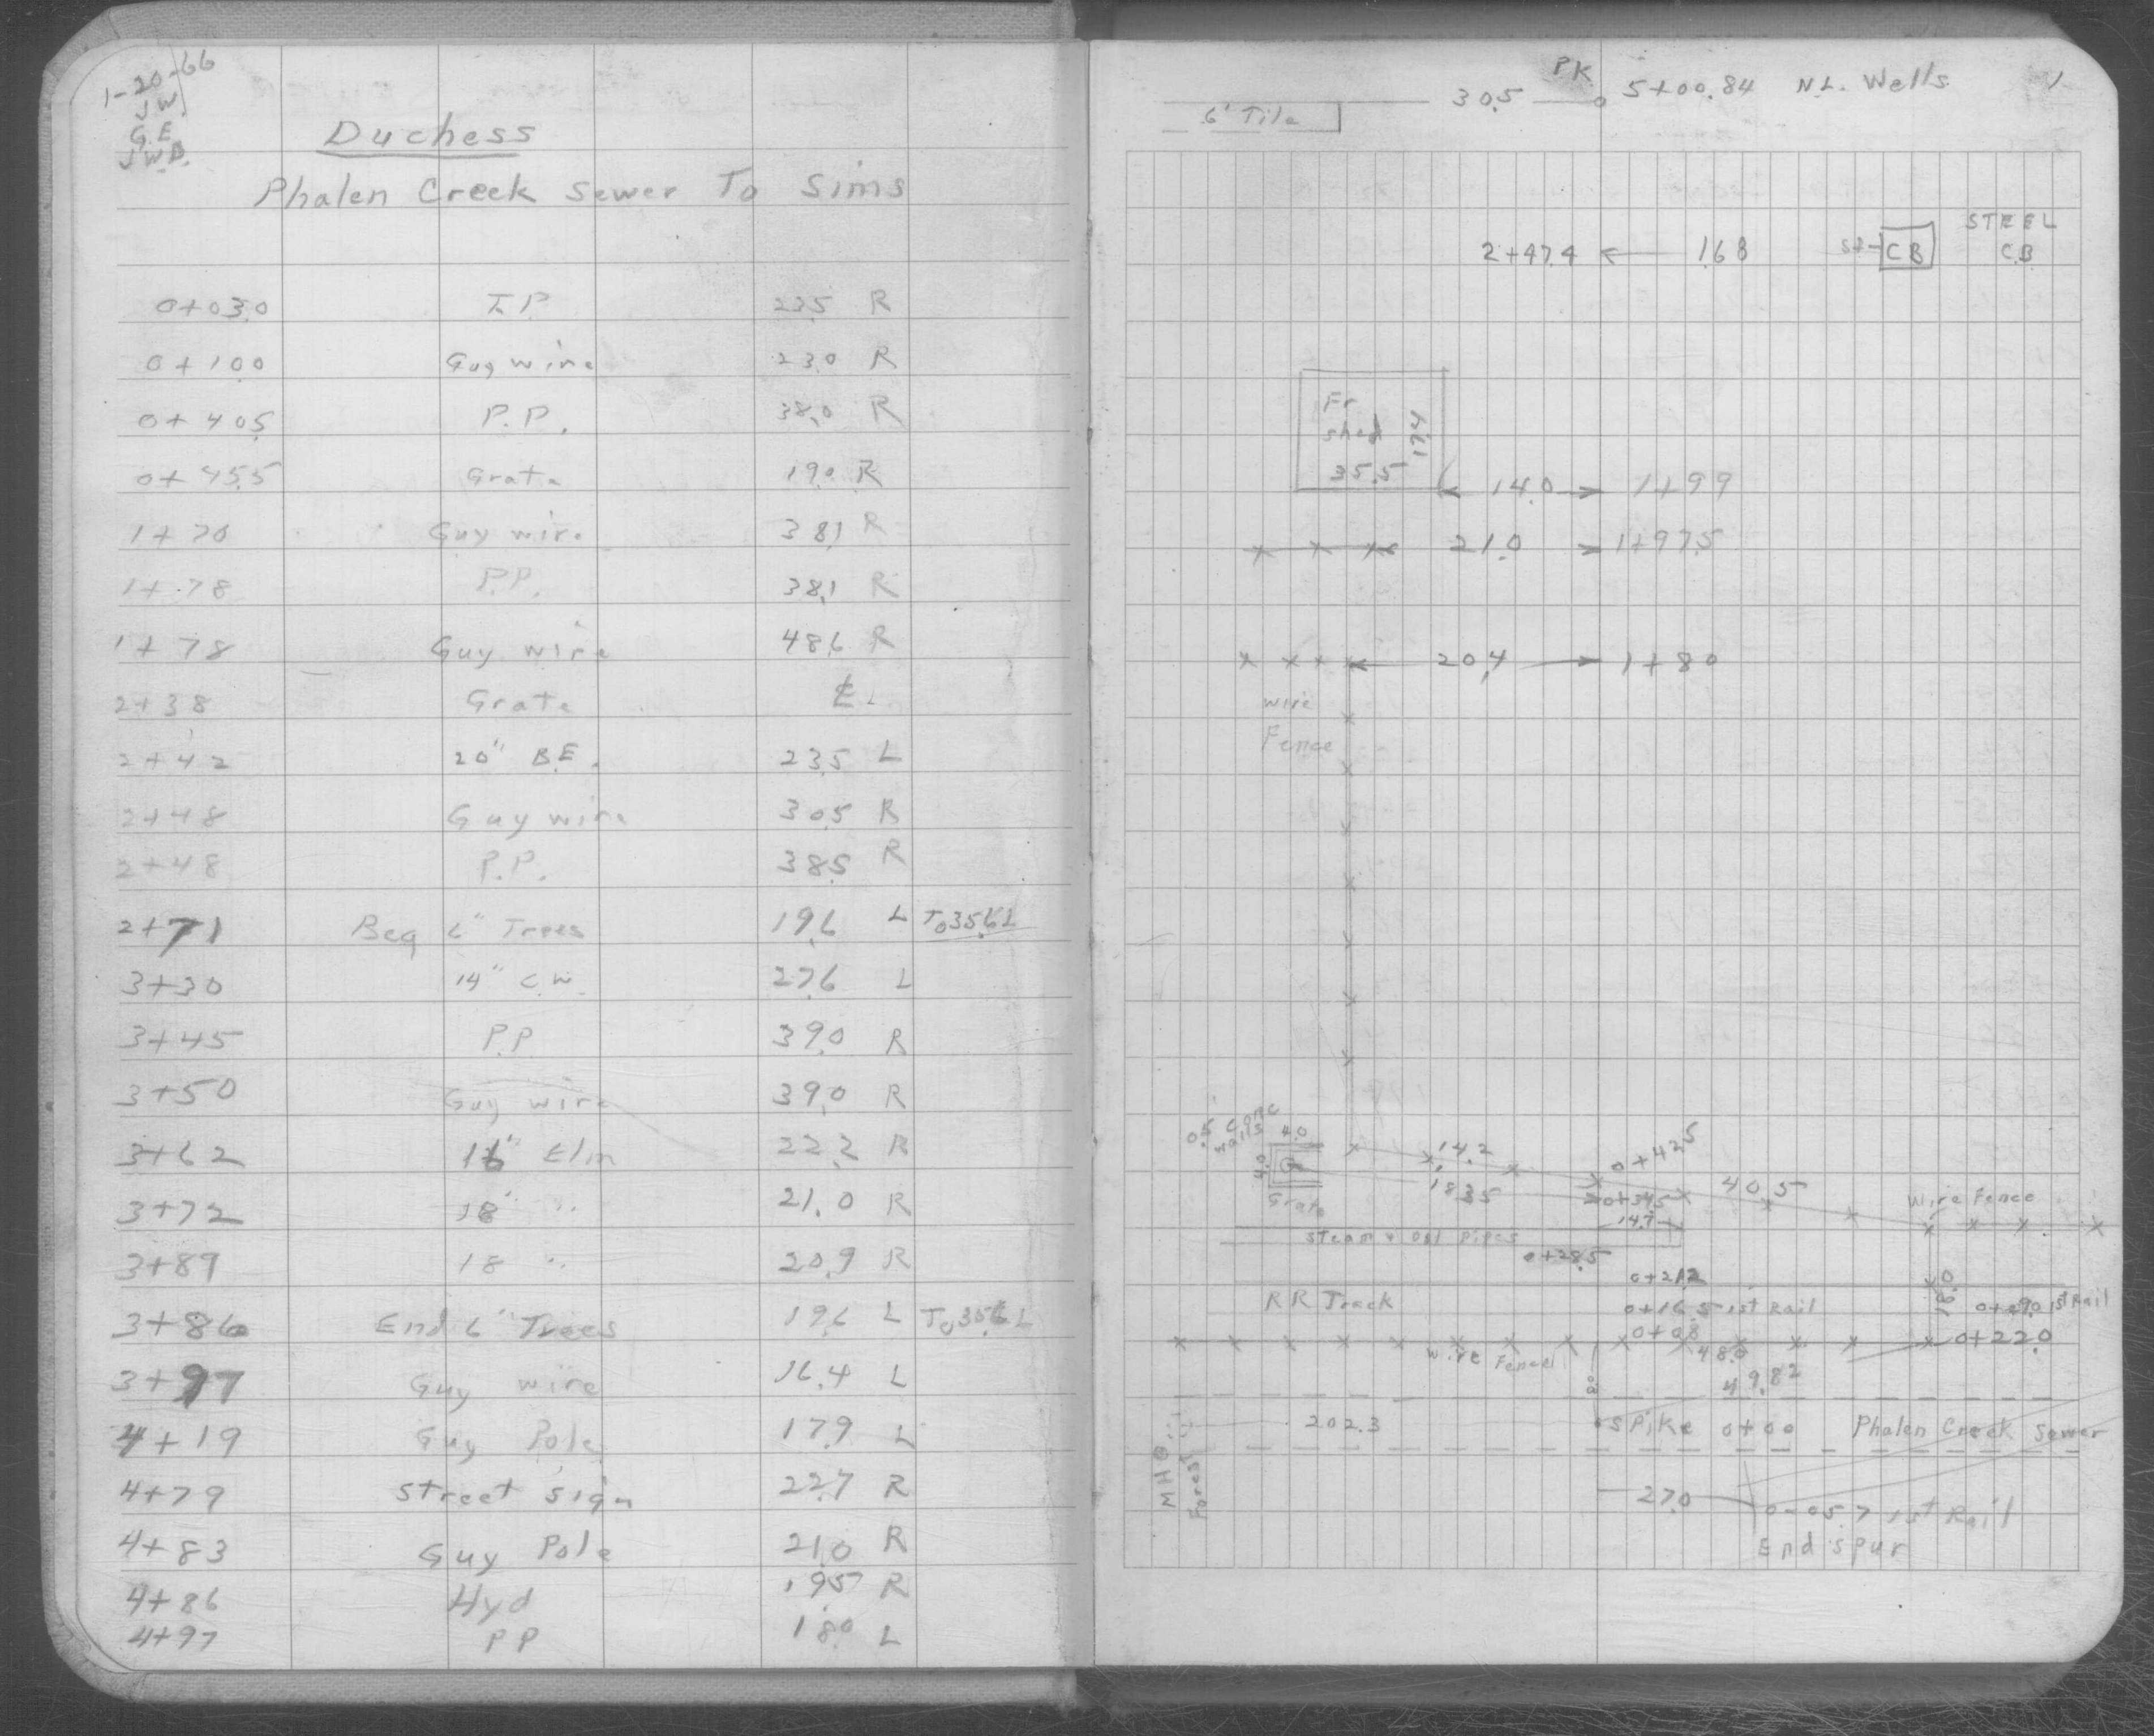 1-20-66
J W
G.E
J.W.B.
Duchess
Phalen Creek Sewer To Sims
0+03.0 T.P. 23.5 R
0+10.0 Guy wire 23.0 R
0+40.5 P.P. 38.0 R
0+45.5 Grate 19.0 R
1+70 Guy wire 38.1 R
1+78 P.P. 38.1 R
1+78 Guy wire 48.6 R
2+38 Grate ℄
2+42 20" B.E. 23.5 L
2+48 Guy wire 30.5 R
2+48 P.P. 38.5 R
2+71 Beg 6" Trees 19.6 L To 35.6 L
3+30 14" C.W. 27.6 L
3+45 P.P 39.0 R
3+50 Guy wire 39.0 R
3+62 16" Elm 22.2 R
3+72 18" " 21.0 R
3+89 18 " 20.9 R
3+86 End 6" Trees 19.6 L To 35.6 L
3+97 Guy wire 16.4 L
4+19 Guy Pole 17.9 L
4+79 Street Sign 22.7 R
4+83 Guy Pole 21.0 R
4+86 Hyd 19.5 R
4+97 PP 18.0 L
1
PK
30.5 5+00.84 N.L. Wells
6' Tile
STEEL
2+47.4 16.8 St- CB C.B
Fr
shed 17.4
35.5
14.0 1+99
21.0 1+97.5
20.4 1+80
wire
Fence
0.5 conc
walls 4.0
14.2 0+42.5
4.0 G
18.35 0+34.5 40.5 Wire Fence
Grate
14.7
Steam & Oil Pipes
0+28.5
0+21.2
RR Track 0+16.5 1st Rail 18.0 1st Rail
0+08 0+22.0
Wire Fence 48.0
8.0 49.82
202.3 Spike 0+00 Phalen Creek Sewer
MH @
Forest
27.0 0-05.7 1st Rail
End spur